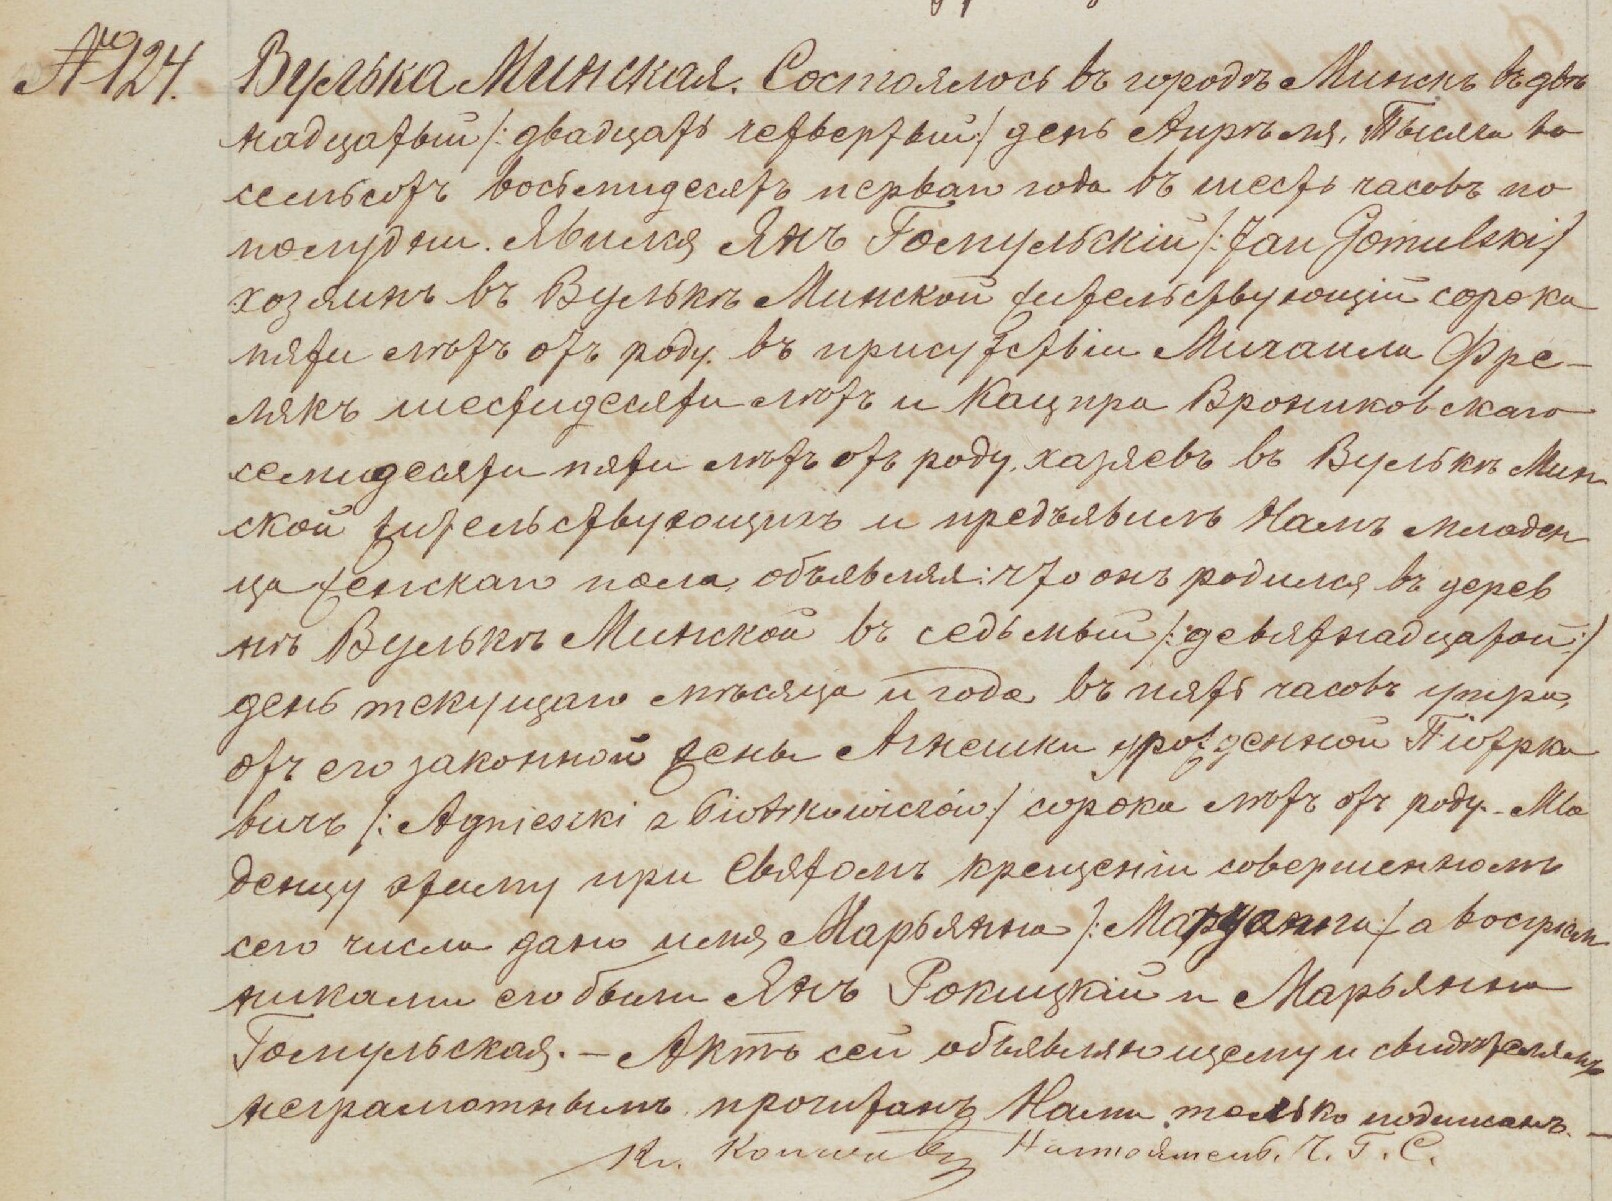 № 124. Вулька Минская. Состоялось въ городѣ Минскѣ въ двѣ
надцатый /:двадцать четвертый:/ день Апрѣля, Тысяча во
семьсотъ восемьдесятъ перваго года въ шесть часовъ по
полудни. Явился Янъ Гомульскій /:Jan Gomulski:/
хозяинъ въ Вулькѣ Минской жительствующій сорока
пяти лѣтъ отъ роду, въ присутствіи Михаила Фре-
лякъ шестидесяти лѣтъ и Кацпра Врониковскаго
семидесяти пяти лѣтъ отъ роду, хазяевъ въ Вулькѣ Мин
ской жительствующихъ и предъявилъ Намъ младен
ца женскаго пола, объявляя: что онъ родился въ дерев
нѣ Вулькѣ Минской въ седьмый /:девятнадцатой:/
день текущаго мѣсяца и года въ пять часовъ утра,
отъ его законной жены Агнешки урожденной Піотрко
вичъ /:Agnieszki z Piotrkowiczów:/ сорока лѣтъ отъ роду. Мла
денцу этому при Святомъ крещеніи совершенномъ
сего числа дано имя Марьянна /:Марyанна:/ а воспріем
никами его были Янъ Рокицкій и Марьянна
Гомульская. — Актъ сей объявляющему и свидѣтелямъ
неграмотнымъ прочитанъ Нами только подписанъ. —
Кс. Настоятель. Ч. Г. С.